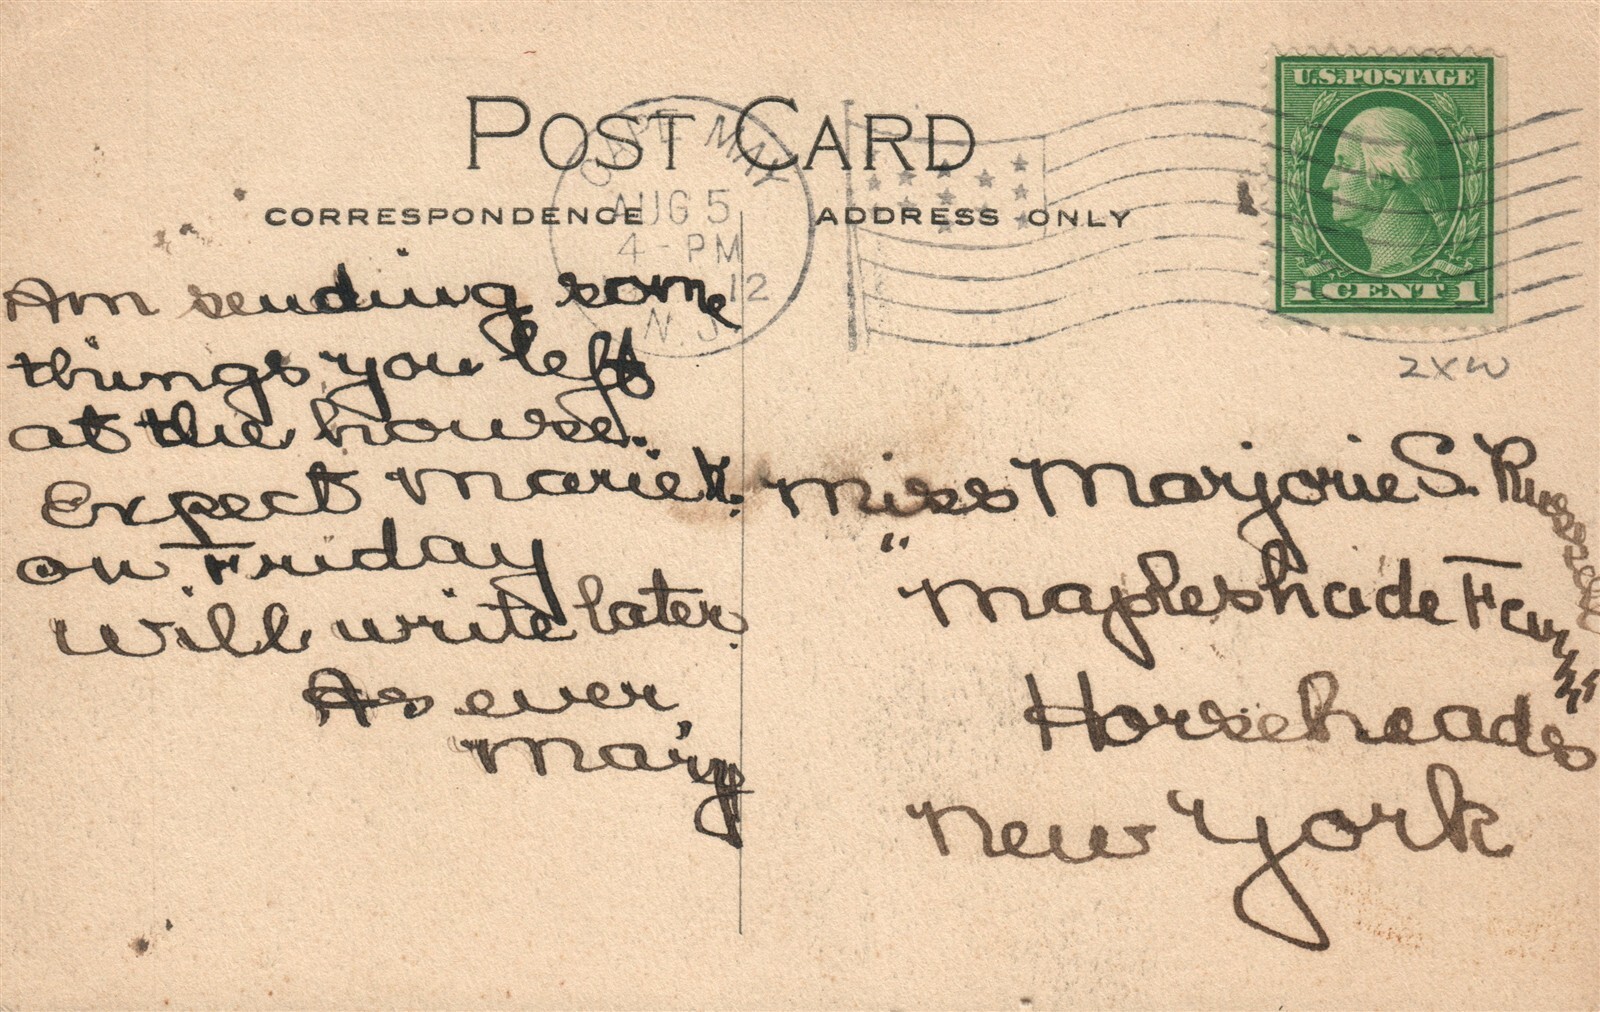 POST CARD
CORRESPONDENCE
ADDRESS ONLY
CAPE MAY
AUG 5
4 - PM
12
N.J.
U.S. POSTAGE
1 CENT 1
2XW
Am sending some
things you left
at the house.
Expect Marie K.
on Friday
will write later.
As ever,
Mary
Miss Marjorie S. Russell
"Mapleshade Farm"
Horseheads
New York